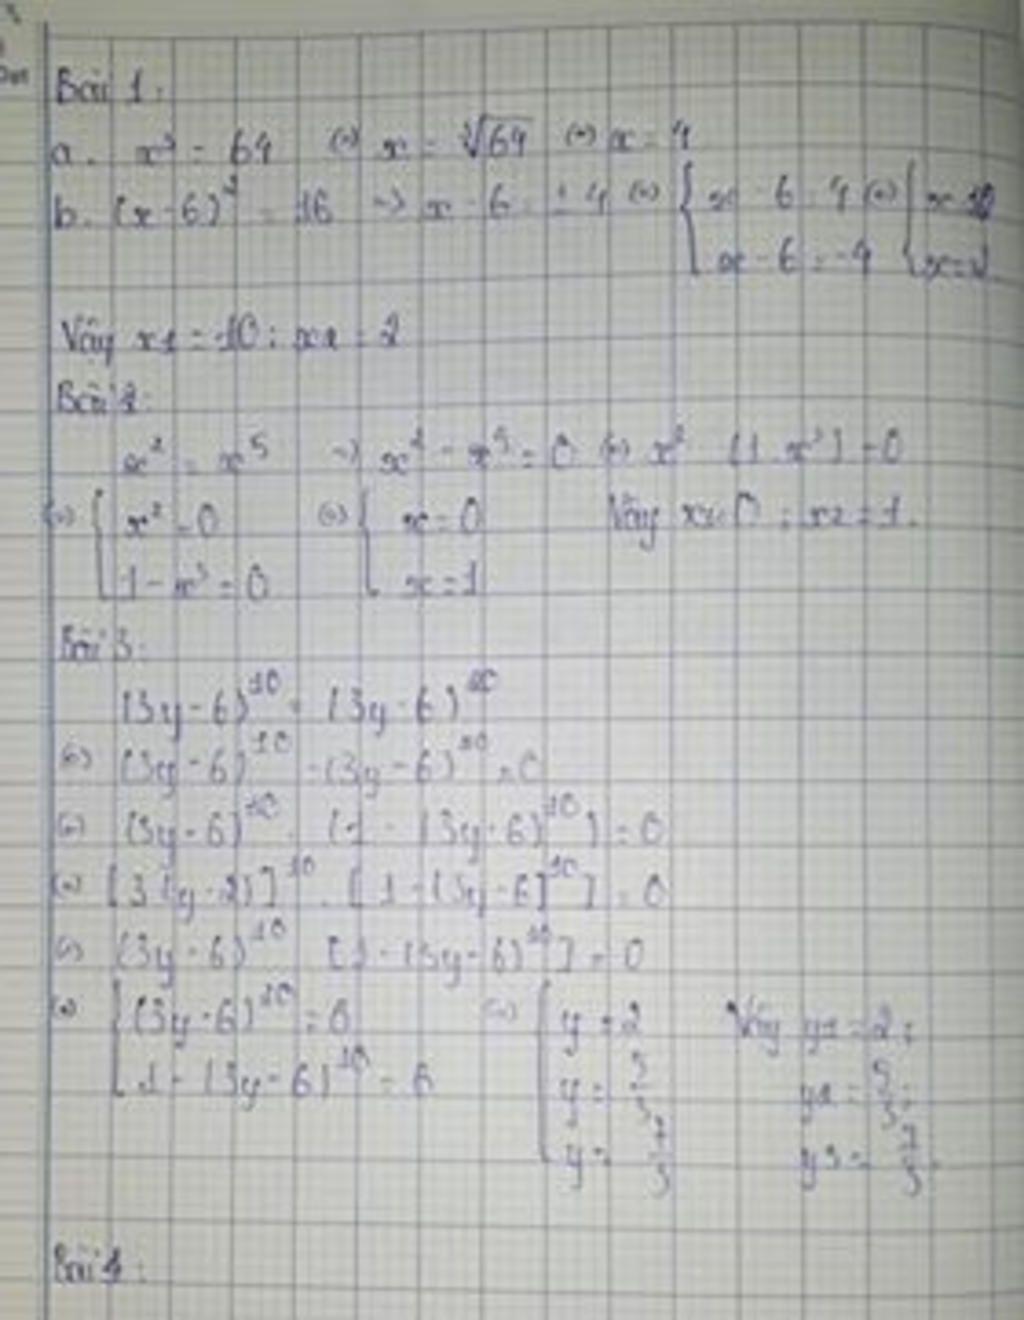 Bài 1:
a. x³ = 64 (=) x = ∛64 (=) x = 4
b. (x - 6)² = 16 => x - 6 = ± 4 (=) { x - 6 = 4 (=) { x = 10
x - 6 = -4 x = 2
Vậy x1 = 10 ; x2 = 2
Bài 2:
x² = x⁵ => x² - x⁵ = 0 (=) x² (1 - x³) = 0
(=) { x² = 0 (=) { x = 0 Vậy x1 = 0 ; x2 = 1.
1 - x³ = 0 x = 1
Bài 3:
(3y - 6)¹⁰ = (3y - 6)²⁰
(=) (3y - 6)¹⁰ - (3y - 6)²⁰ = 0
(=) (3y - 6)¹⁰ . [1 - (3y - 6)¹⁰] = 0
(=) [3(y - 2)]¹⁰ . [1 - (3y - 6)¹⁰] = 0
(=) (3y - 6)¹⁰ [1 - (3y - 6)¹⁰] = 0
(=) [ (3y - 6)¹⁰ = 0 (=) [ y = 2 Vậy y1 = 2 ;
1 - (3y - 6)¹⁰ = 0 y = 5/3 y2 = 5/3 ;
y = 7/3 y3 = 7/3 .
Bài 4: